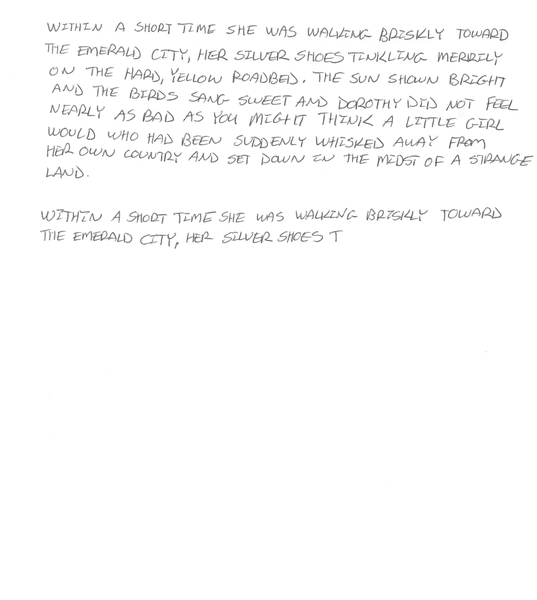 WITHIN A SHORT TIME SHE WAS WALKING BRISKLY TOWARD
THE EMERALD CITY, HER SILVER SHOES TINKLING MERRILY
ON THE HARD, YELLOW ROADBED. THE SUN SHOWN BRIGHT
AND THE BIRDS SANG SWEET AND DOROTHY DID NOT FEEL
NEARLY AS BAD AS YOU MIGHT THINK A LITTLE GIRL
WOULD WHO HAD BEEN SUDDENLY WHISKED AWAY FROM
HER OWN COUNTRY AND SET DOWN IN THE MIDST OF A STRANGE
LAND.
WITHIN A SHORT TIME SHE WAS WALKING BRISKLY TOWARD
THE EMERALD CITY, HER SILVER SHOES T